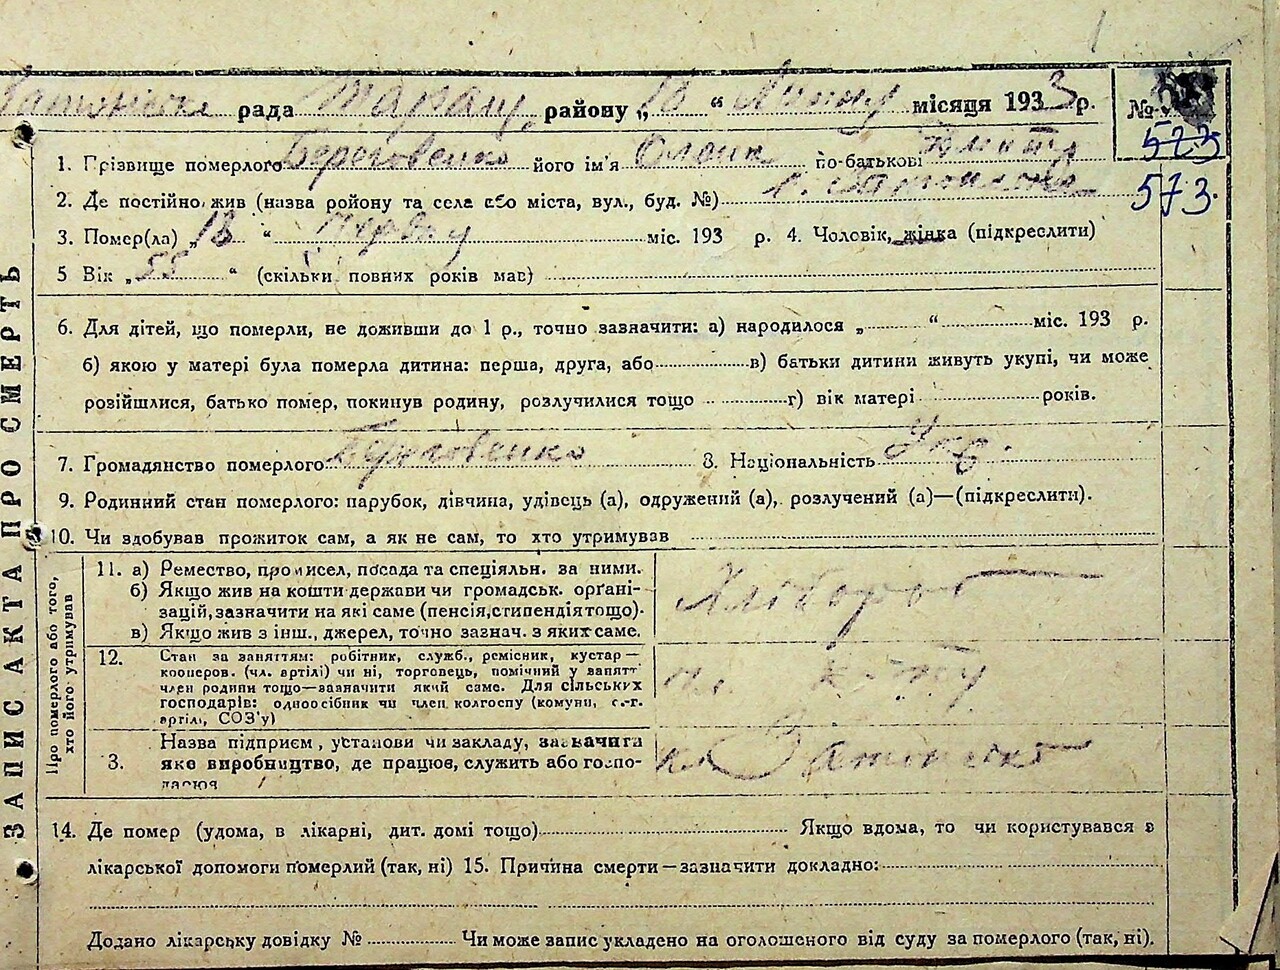 рада Таращ. району „18 “ Липню місяця 1933 р. №
523
1. Прізвище померлого Береговенко його ім'я по-батькові Дмитр
573.
2. Де постійно жив (назва району та села або міста, вул., буд. №) с.
3. Помер(ла) „18 “ Червню міс. 193 р. 4. Чоловік, жінка (підкреслити)
5 Вік „55 “ (скільки повних років мав)
6. Для дітей, що померли, не доживши до 1 р., точно зазначити: а) народилося „ “ міс. 193 р.
б) якою у матері була померла дитина: перша, друга, або в) батьки дитини живуть укупі, чи може
розійшлися, батько помер, покинув родину, розлучилися тощо г) вік матері років.
7. Громадянство померлого Береговенко 8. Національність Укр.
9. Родинний стан померлого: парубок, дівчина, удівець (а), одружений (а), розлучений (а)—(підкреслити).
10. Чи здобував прожиток сам, а як не сам, то хто утримував
Про померлого або того, хто його утримував
11. а) Ремество, промисел, посада та спеціяльн. за ними.
б) Якщо жив на кошти держави чи громадськ. орґані-
зацій, зазначити на які саме (пенсія, стипендія тощо).
в) Якщо жив з інш., джерел, точно зазнач. з яких саме.
Хлібороб
12. Стан за заняттям: робітник, служб., ремісник, кустар—
кооперов. (чл. артілі) чи ні, торговець, помічний у занятт
член родини тощо—зазначити який саме. Для сільських
господарів: одноосібник чи член колгоспу (комуни, с.-г.
артілі, СОЗ'у)
3. Назва підприєм, установи чи закладу, зазначити
яке виробництво, де працює, служить або госпо-
дарює
14. Де помер (удома, в лікарні, дит. домі тощо) Якщо вдома, то чи користувався з
лікарської допомоги померлий (так, ні) 15. Причина смерти—зазначити докладно:
Додано лікарську довідку № Чи може запис укладено на оголошеного від суду за померлого (так, ні).
ЗАПИС АКТА ПРО СМЕРТЬ